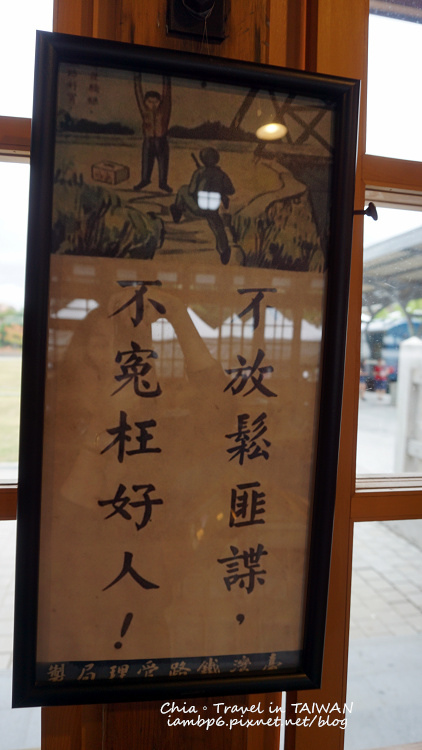 不放鬆匪諜，
不冤枉好人！
臺灣鐵路管理局製
Chia。Travel in TAIWAN
iambp6.pixnet.net/blog